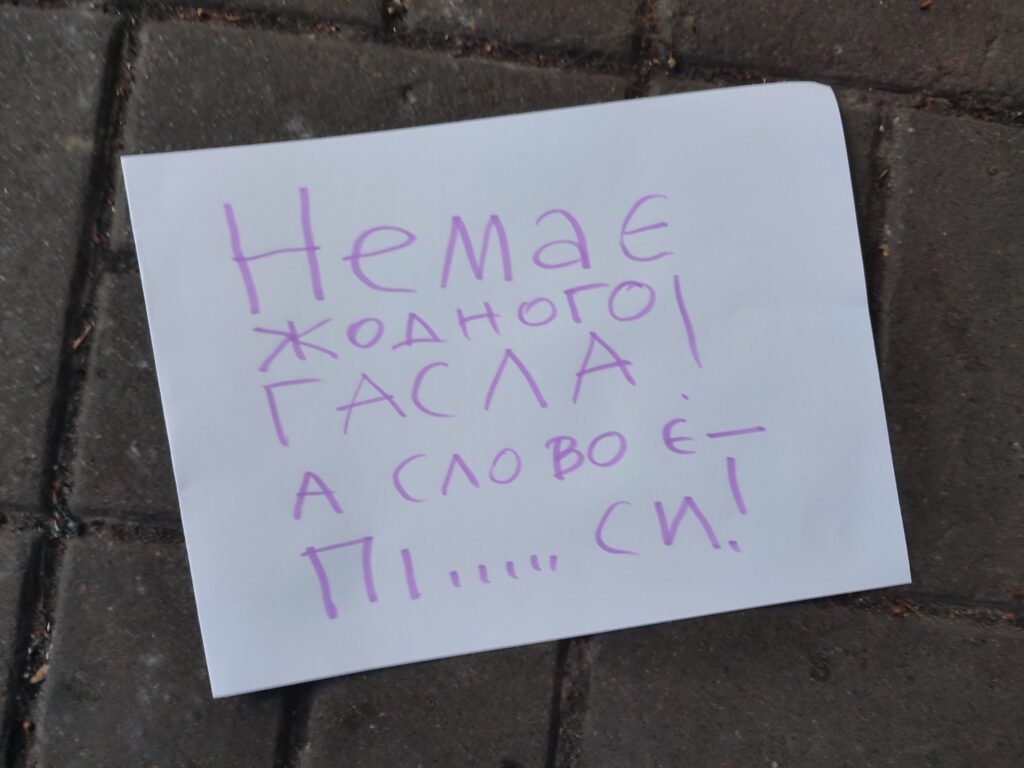 Немає
жодного
гасла!
А слово є –
Пі..... си!